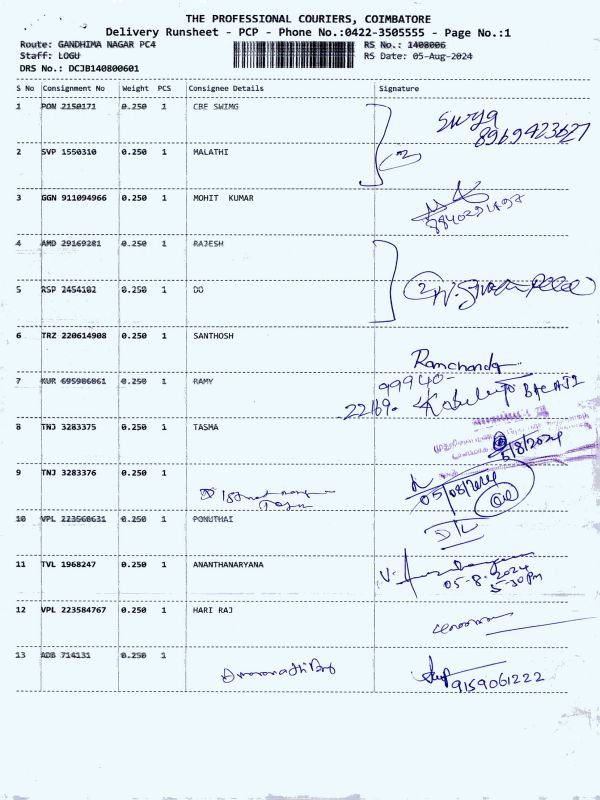 THE PROFESSIONAL COURIERS, COIMBATORE
Delivery Runsheet - PCP - Phone No.:0422-3505555 - Page No.:1
Route: GANDHIMA NAGAR PC4 RS No.: 1408006
Staff: LOGU RS Date: 05-Aug-2024
DRS No.: DCJB140800601
S No Consignment No Weight PCS Consignee Details Signature
1 PON 2150171 0.250 1 CBE SWIMG
8969423627
2 SVP 1550310 0.250 1 MALATHI
2
3 GGN 911094966 0.250 1 MOHIT KUMAR
4 AMD 29169281 0.250 1 RAJESH
5 RSP 2454102 0.250 1 DO
2
6 TRZ 220614908 0.250 1 SANTHOSH
Ramchandra
99940-
7 KUR 695986061 0.250 1 RAMY
22169.
8 TNJ 3283375 0.250 1 TASMA
5/8/2024
9 TNJ 3283376 0.250 1
05/08/2024
10 VPL 223560631 0.250 1 PONUTHAI
11 TVL 1968247 0.250 1 ANANTHANARYANA
05-8-2024
5-30pm
12 VPL 223584767 0.250 1 HARI RAJ
13 ADB 714131 0.250 1
9159061222